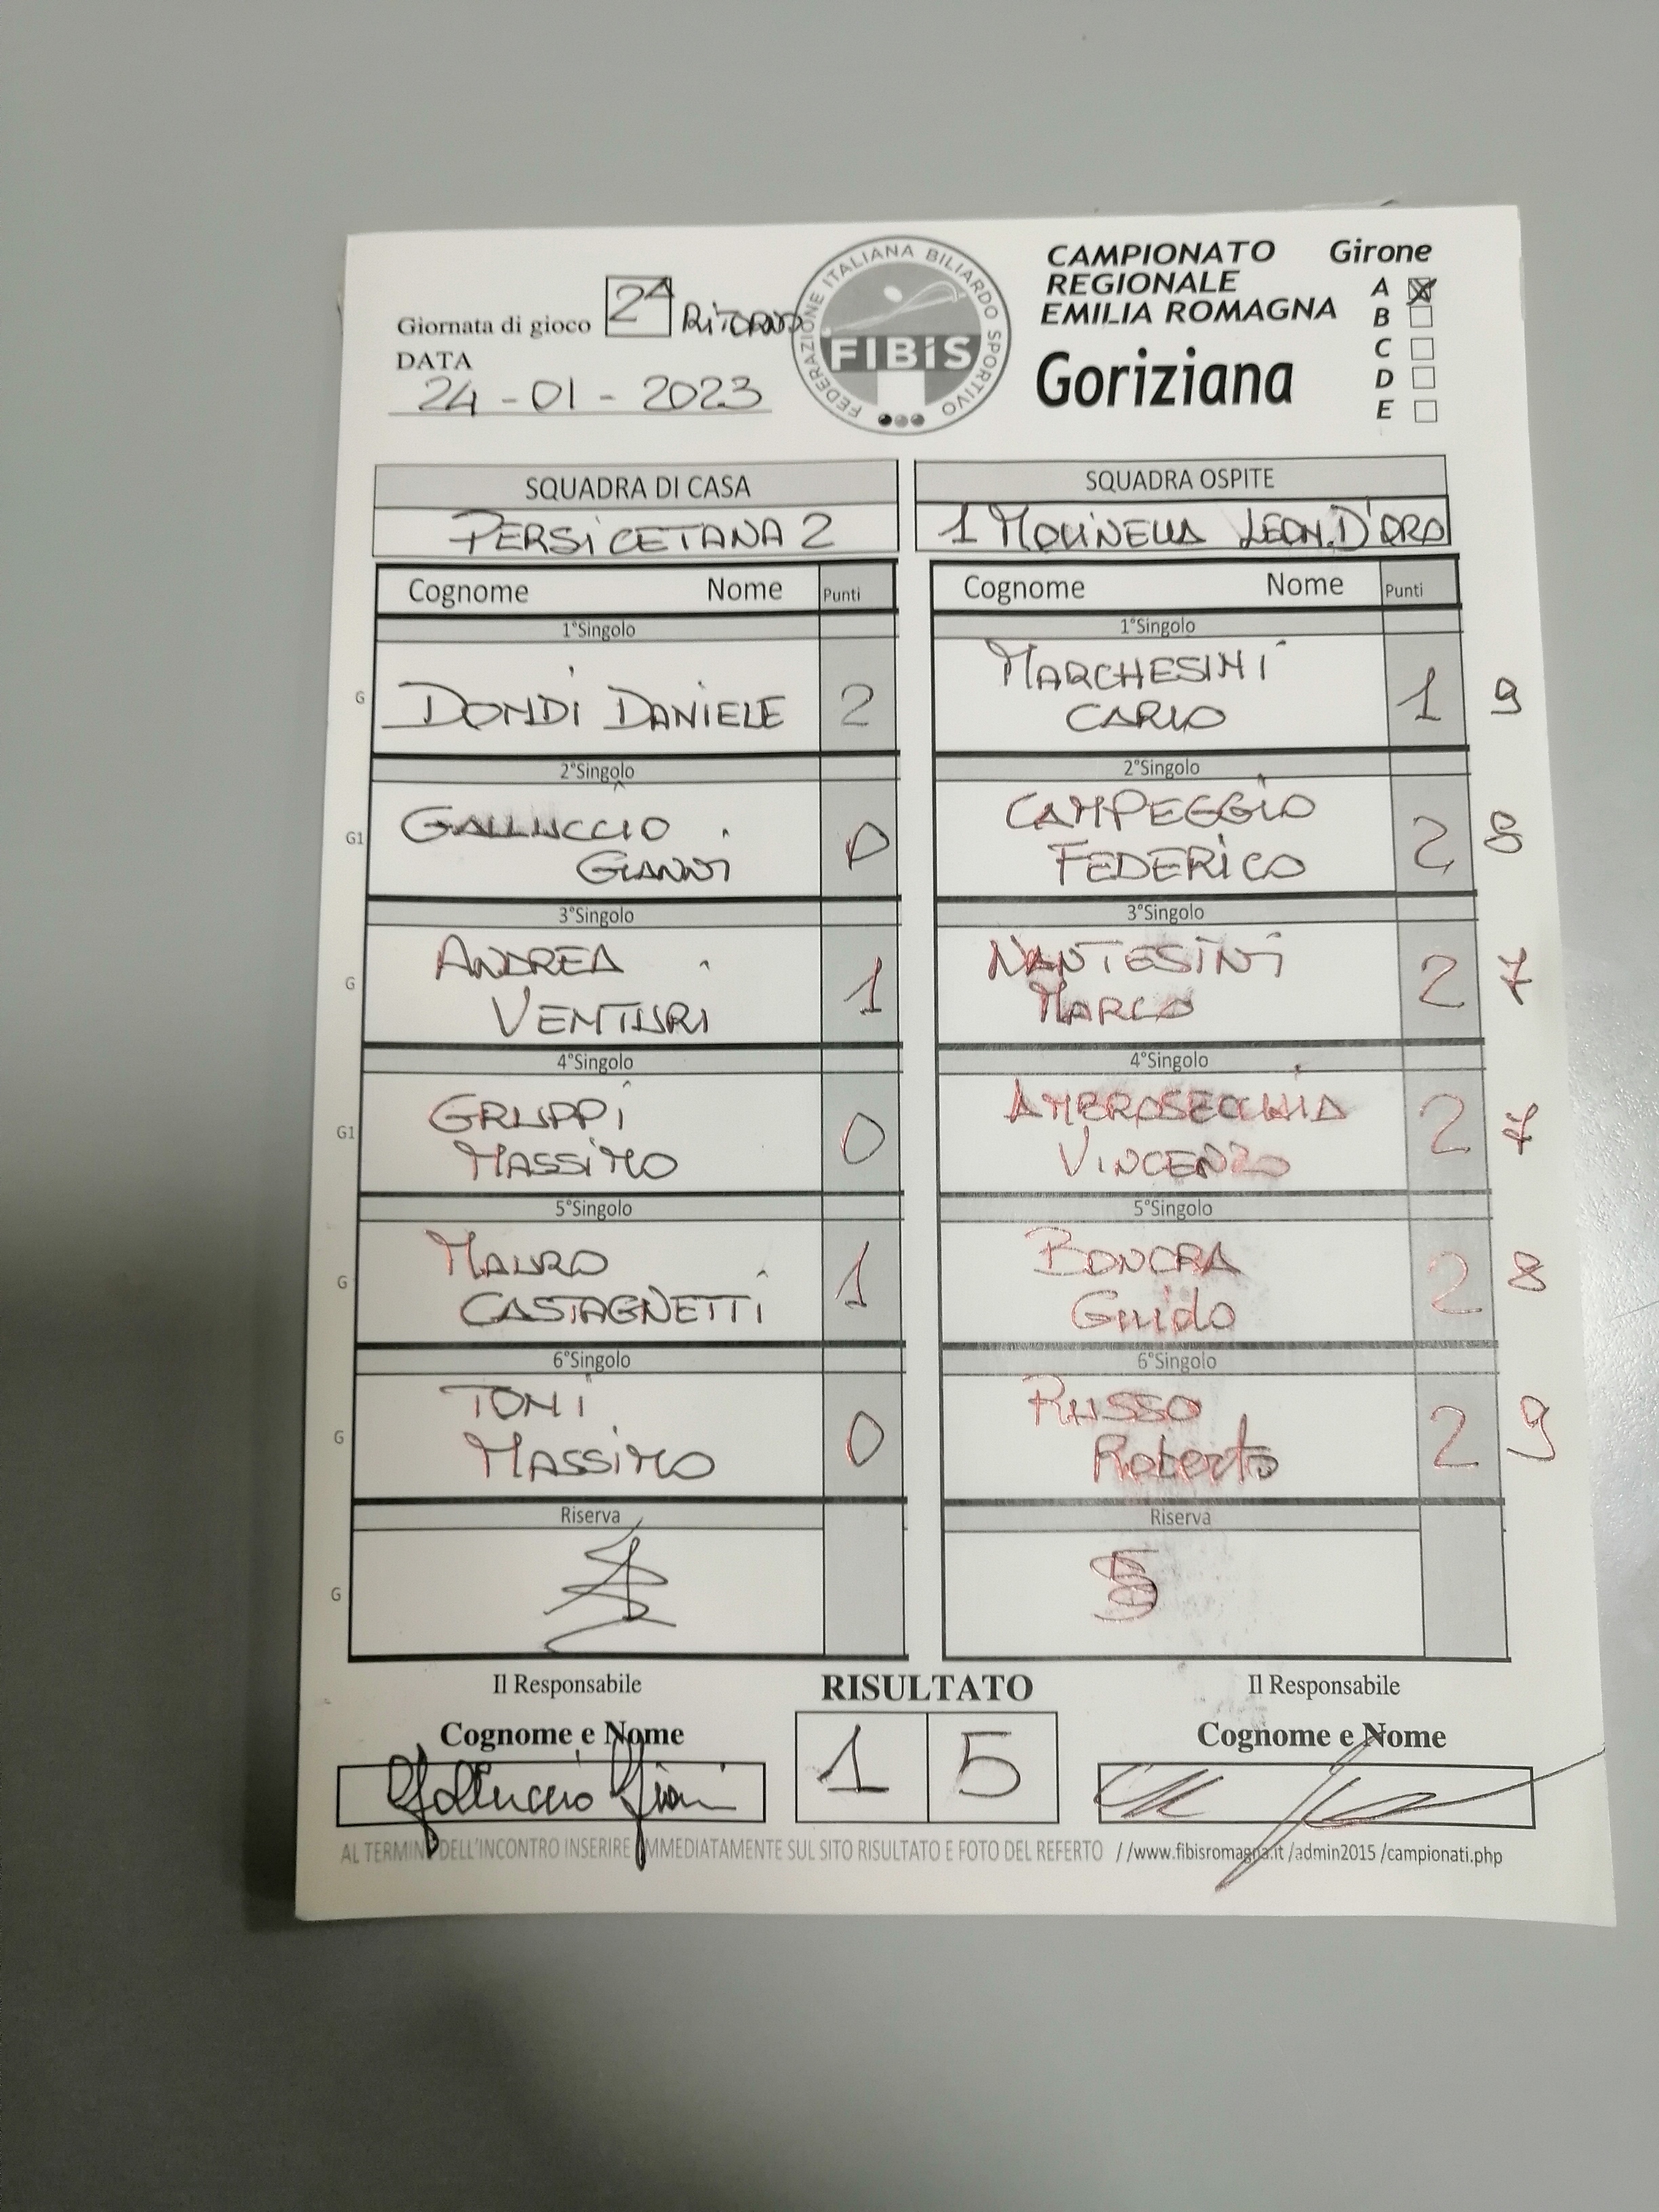 Giornata di gioco 2ª RITORNO
DATA
24 - 01 - 2023
FEDERAZIONE ITALIANA BILIARDO SPORTIVO
FIBiS
CAMPIONATO
REGIONALE
EMILIA ROMAGNA
Goriziana
Girone
A
B
C
D
E
SQUADRA DI CASA
PERSICETANA 2
SQUADRA OSPITE
1 MOLINELLA LEON.D'ORO
Cognome Nome Punti
Cognome Nome Punti
1°Singolo
1°Singolo
G
DONDI DANIELE 2
MARCHESINI
CARLO
1 9
2°Singolo
2°Singolo
G1
GALLUCCIO
GIANNI
0
CAMPEGGIO
FEDERICO
2 8
3°Singolo
3°Singolo
G
ANDREA
VENTURI
1
NANTESINI
MARCO
2 7
4°Singolo
4°Singolo
G1
GRUPPI
MASSIMO
0
AMBROSECCHIA
VINCENZO
2 7
5°Singolo
5°Singolo
G
MAURO
CASTAGNETTI
1
BONORA
Guido
2 8
6°Singolo
6°Singolo
G
TONI
MASSIMO
0
RUSSO
Roberto
2 9
Riserva
Riserva
G
Il Responsabile
RISULTATO
Il Responsabile
Cognome e Nome
Cognome e Nome
Galluccio Gianni
1 5
AL TERMINE DELL'INCONTRO INSERIRE IMMEDIATAMENTE SUL SITO RISULTATO E FOTO DEL REFERTO //www.fibisromagna.it /admin2015 /campionati.php